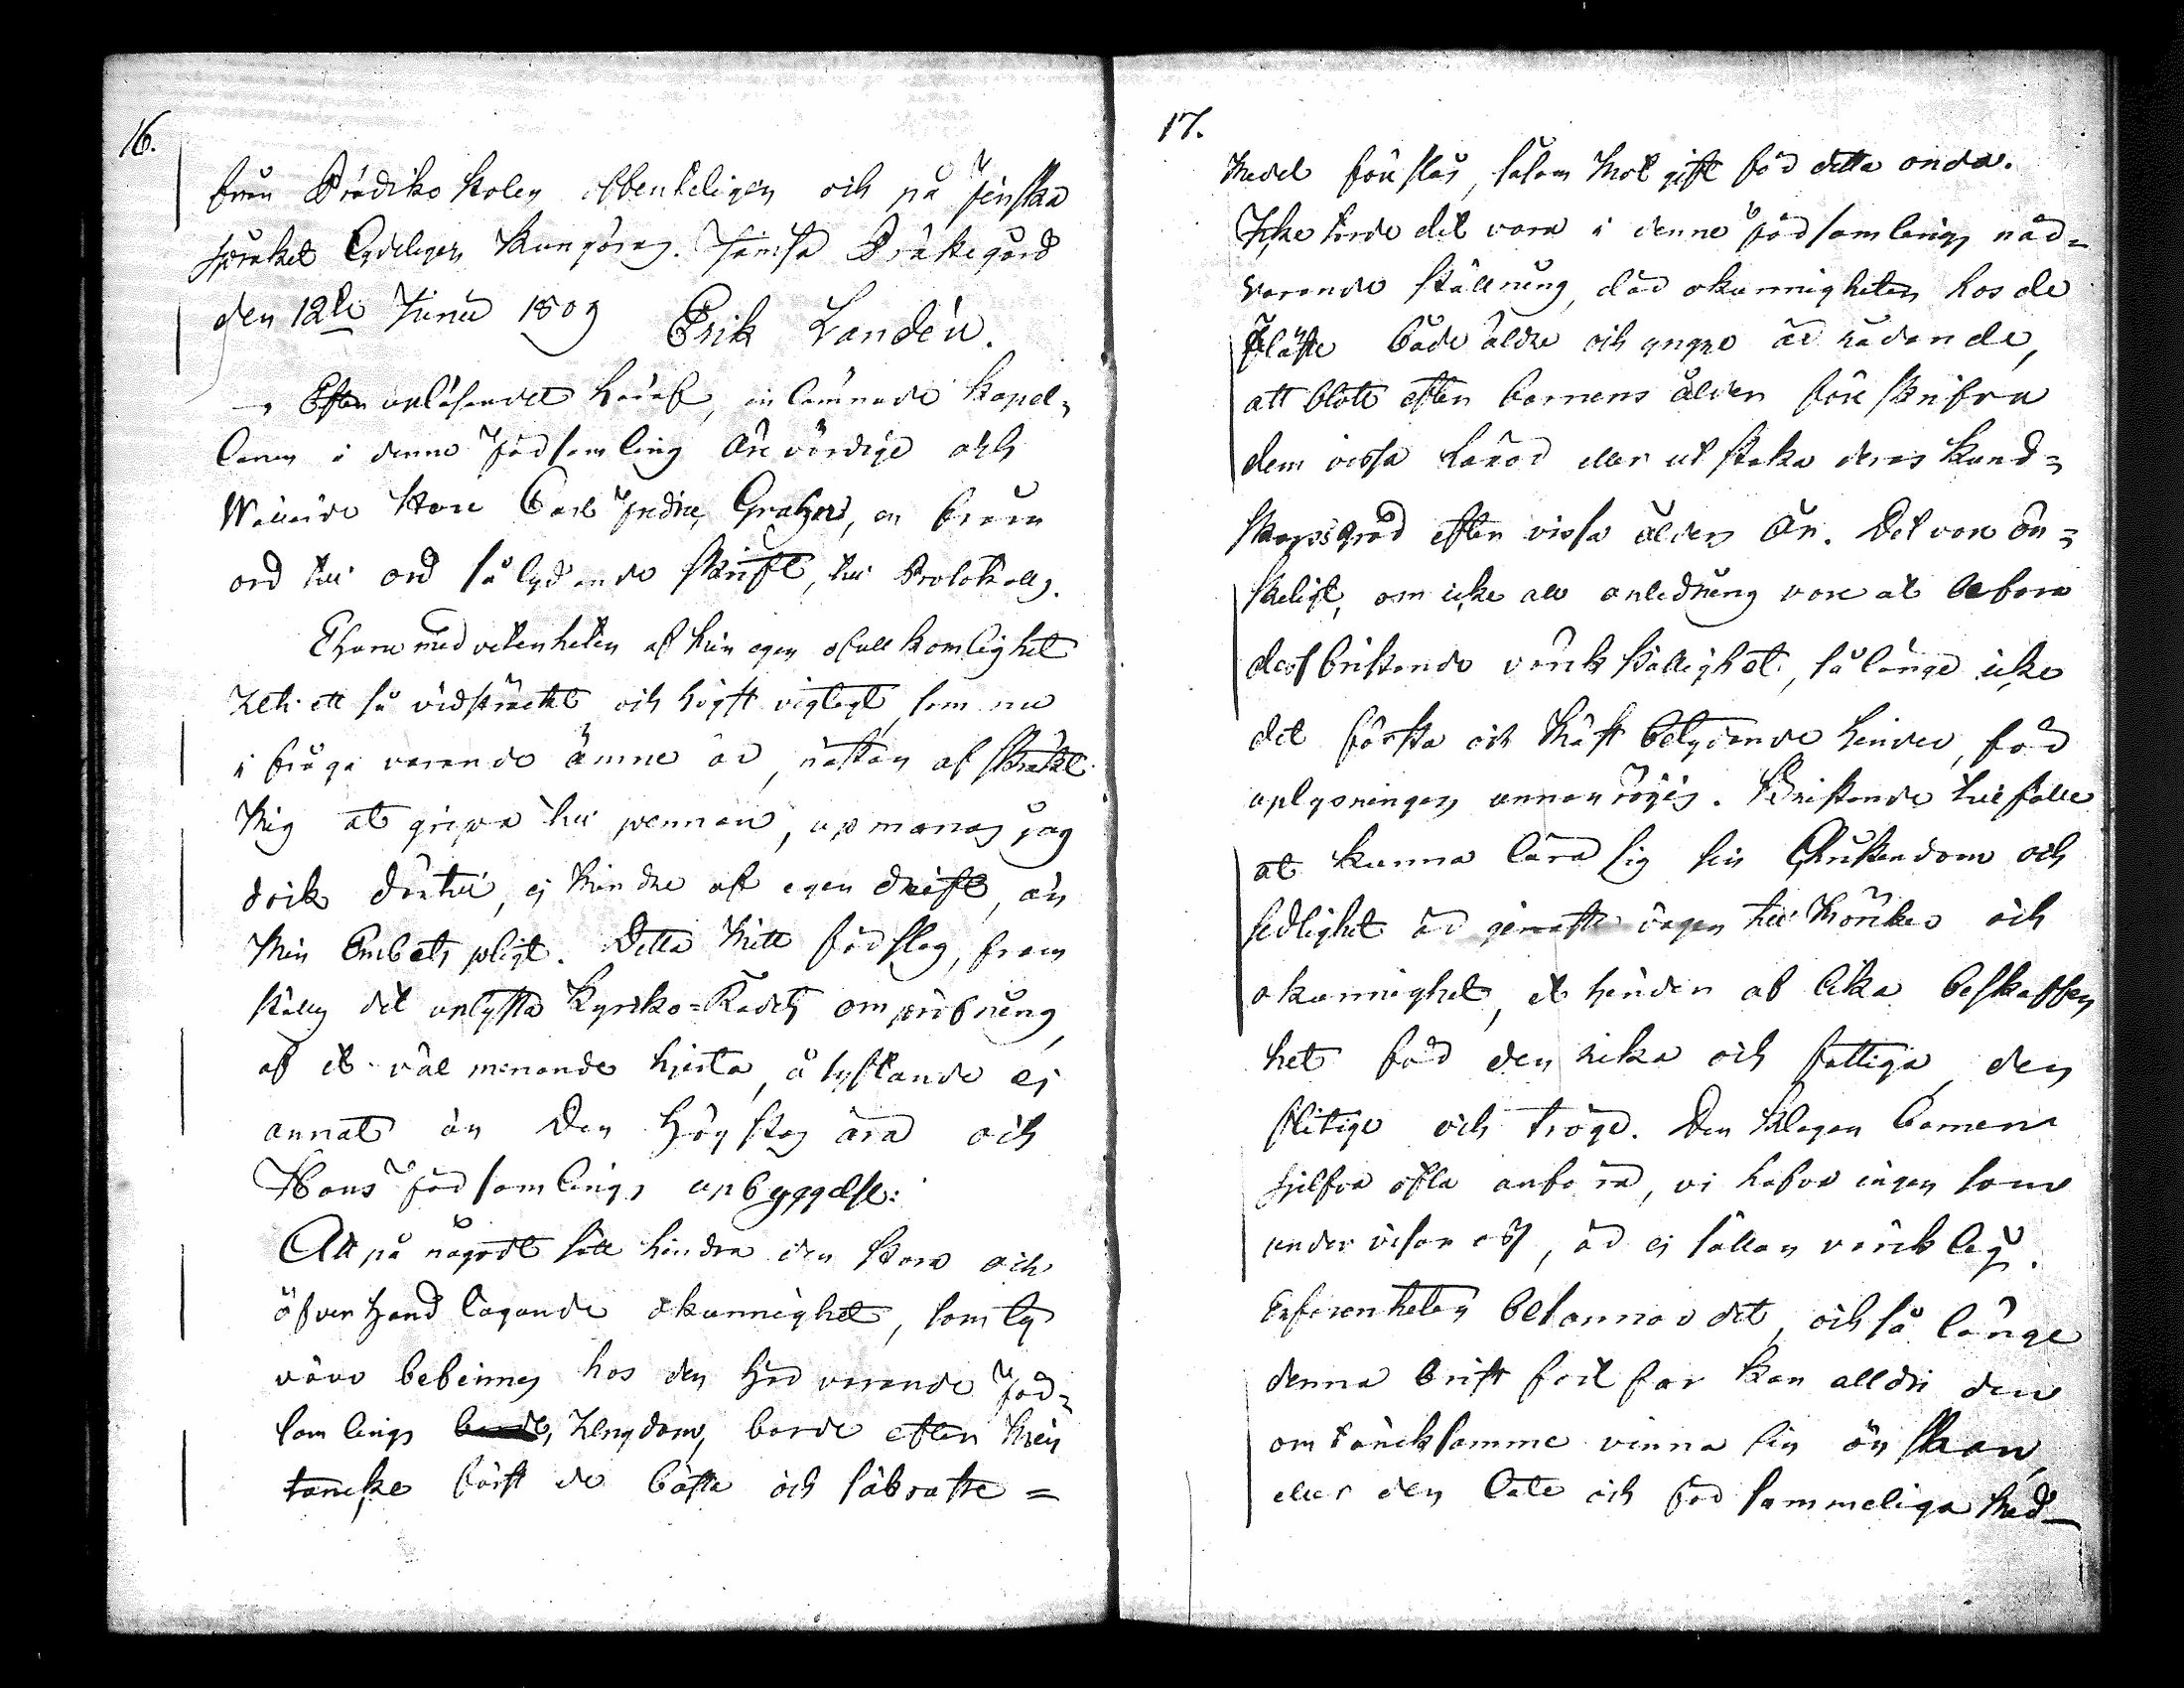 16.
från Prediko Stolen offenteligen och på finska
språket Lydeligen kungöras. Jämsä Prästegård
den 12te Junii 1809 Erik Landén.
Efter upläsandet häraf, inlämnade Kapel=
lanen i denne Församling Ärevördige och
Wällärde Herr Carl Fredric, en
ord till ord så lydande Skrift, till Protokoll.
Ehuru medvetenheten af min egen ofullkomlighet
uti ett så vidsträckt och högst vigtigt, som nu
i fråga varande ämne är, nästan afskräckt
mig at gripa till pennan, upmanas jag
dock därtill, ej mindre af egen drift, än
min Embets pligt. Detta mitt förslag, fram
ställes det uplysta Kyrko=Rådets ompröfning,
af et väl menande hjerta, åsyftande ej
annat än Den Högstas ära och
Hans Församlings upbyggelse:
Att på något sätt hindra den stora och
öfverhand tagande okunnighet, som ty
värr befinnes hos den här varande För=
samlings Ungdom, borde efter min
tancke först de bästa och säkraste =
17.
medel föreslås, såsom mot gift för detta onda.
Icke torde det vara i denne Församlings när=
varande ställning, där okunnigheten hos de
fläste både äldre och yngre är rådande,
att blott efter barnens ålder föreskrifva
dem vissa läror eller utstaka deras Kund=
skapsgrad efter vissa ålders år. Det vore ön=
skeligt, om icke all anledning vore at befara
dess bristande värkställighet, så länge icke
det första och mäst betydande hinder, för
uplysningen undanröjes. Bristande tillfälle
at kunna lära sig sin Christendom och
sedlighet är genaste vägen till Mörker och
okunnighet, et hinder af lika beskaffen
het för den rika och fattiga, den
flitige och tröge. Den klagan barnen
sjelfva ofta anföra, vi hafva ingen som
undervisar oss, är ej sällan värcklig.
Erfarenheten besannar det, och så länge
denna brist fortfar kan alldri den
omtäncksamme vinna sin önskan,
eller den late och försammeliga med_